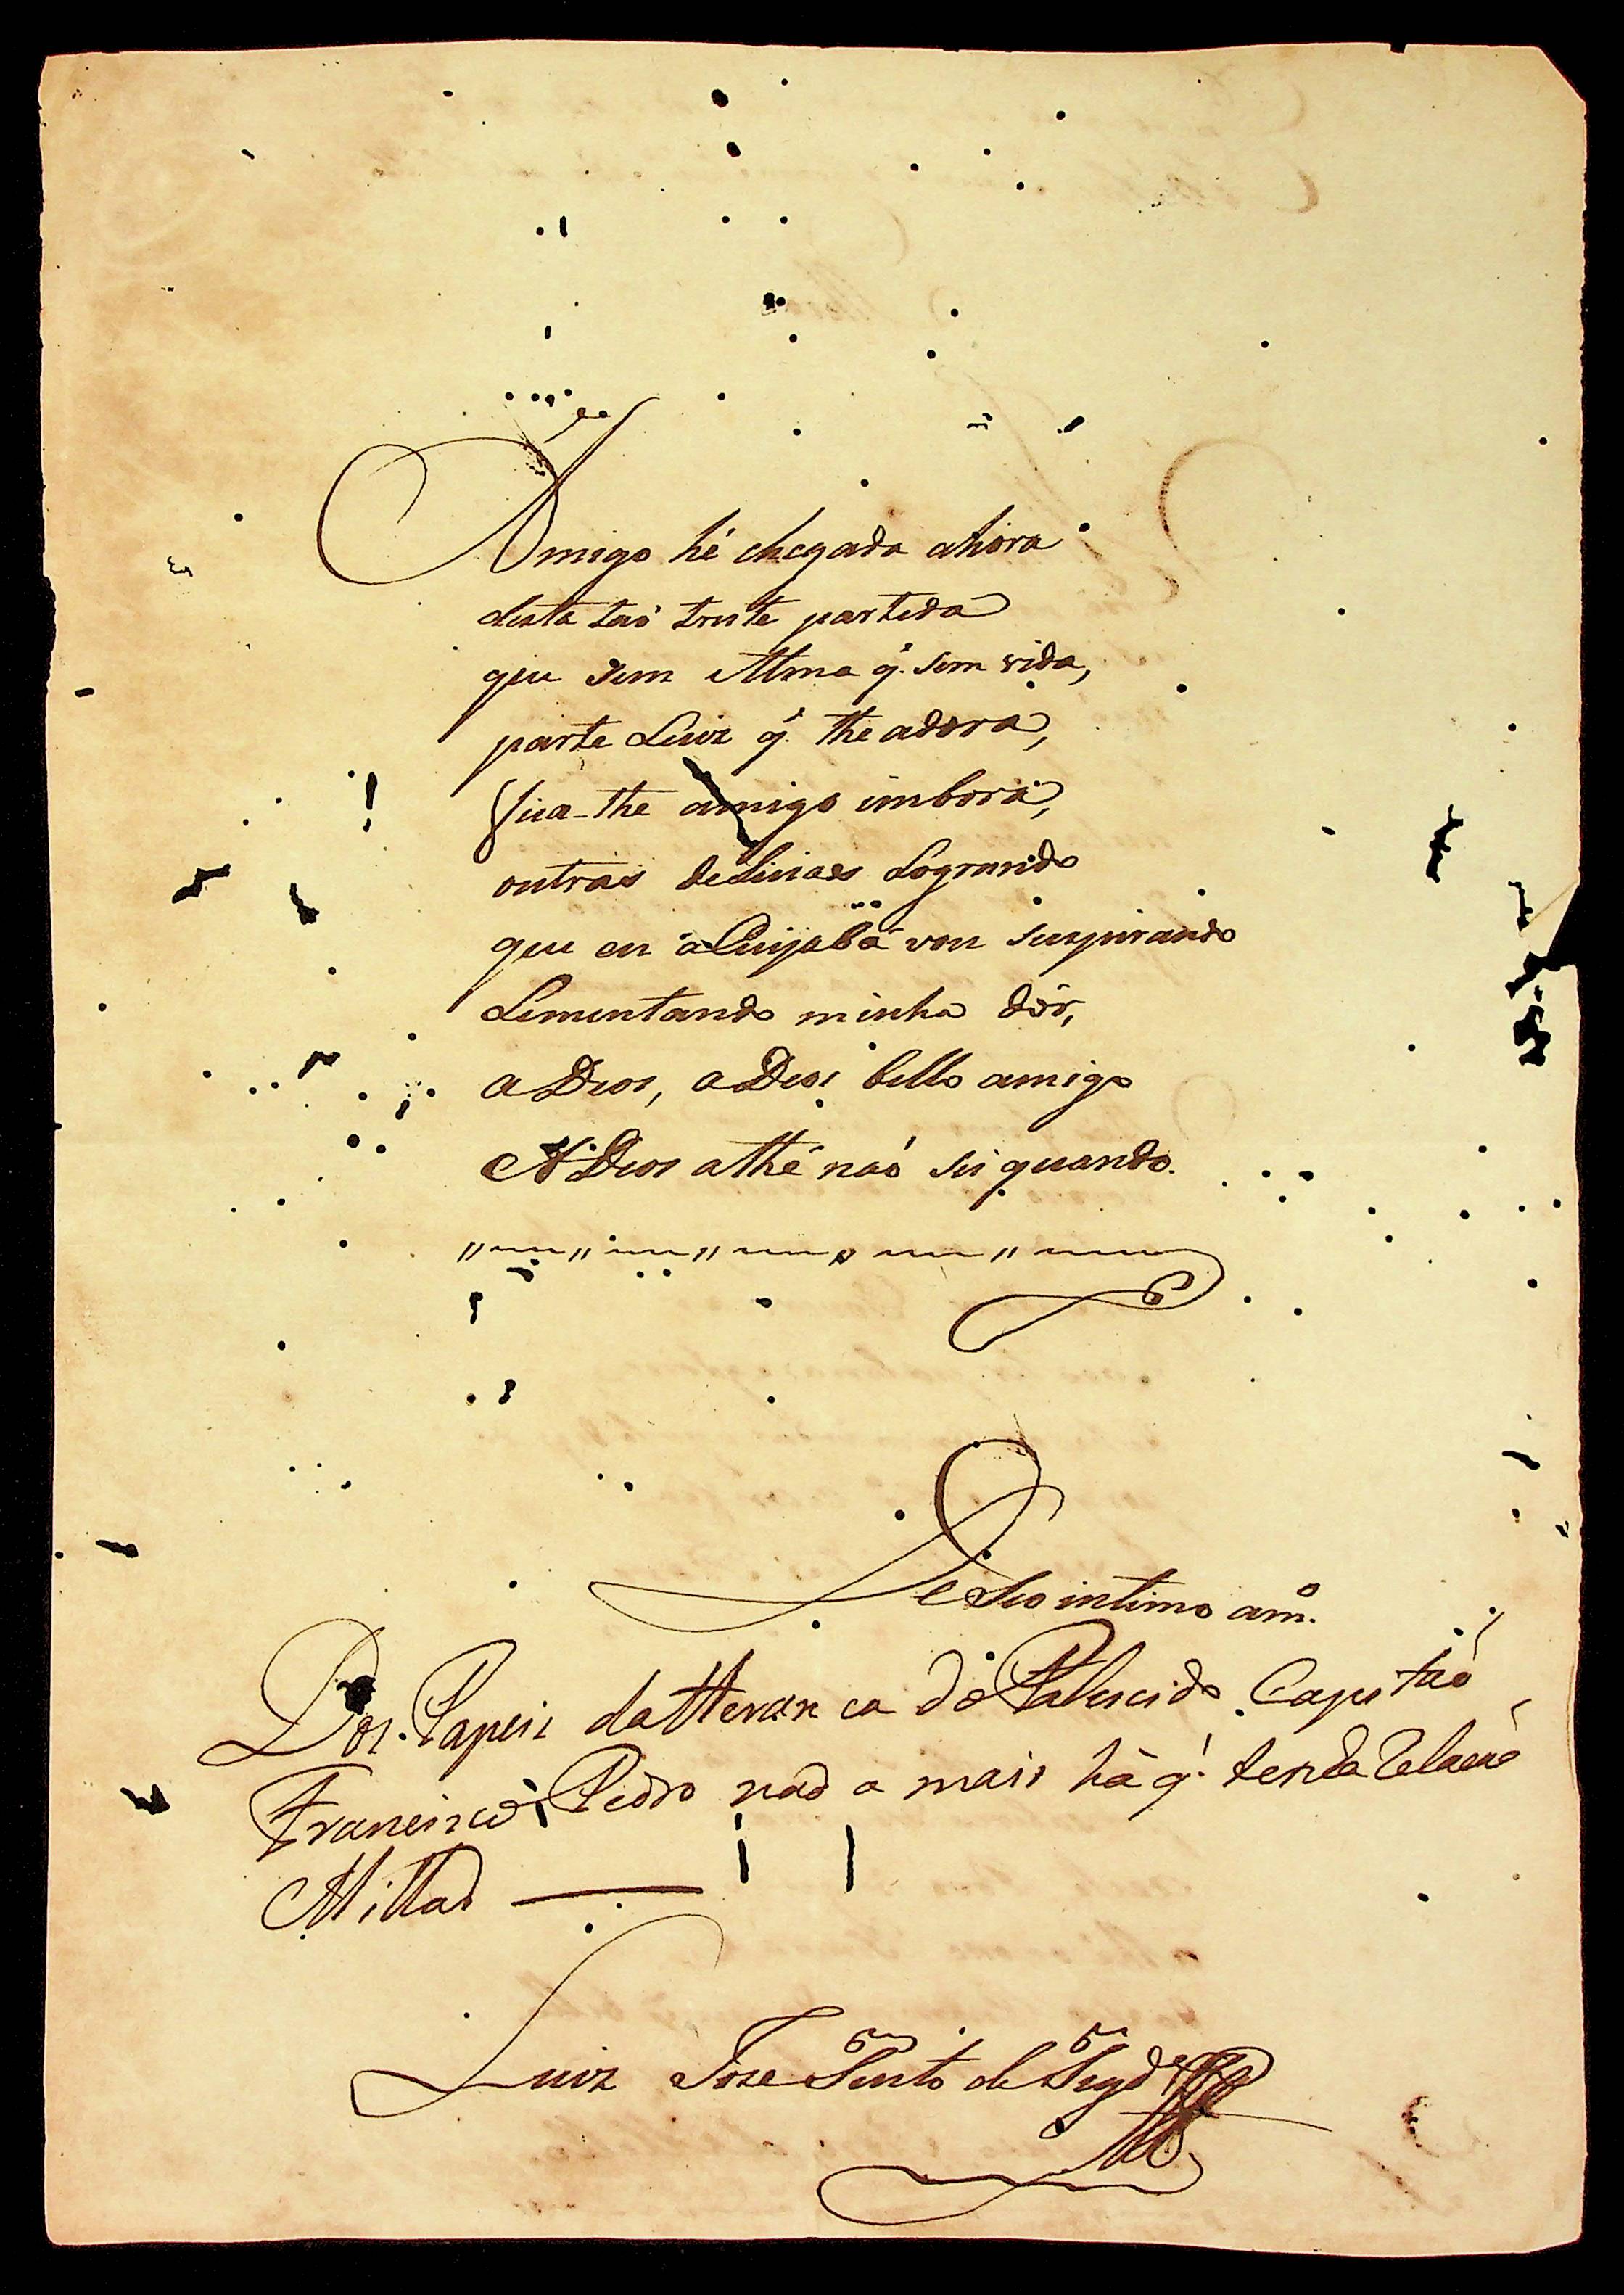 Amigo hé chegada ahora
desta taõ triste partida
que sem Alma q̃. sem vida,
parte Luiz q̃. the adora,
fica-the amigo imbora,
outras delicias Logrando
que eu a Cuijabá vou suspirando
Lementando minha dôr,
a Deos, a Deos bello amigo
A Deos athé naó sei quando.
De Seo intimo am.º
Dos. Papeis da Heran ca do Falescido Capitaó
Francisco Pedro nad a mais há q̃. tenda Relacaó
Millad
Luiz Joze Pinto de Figd.º